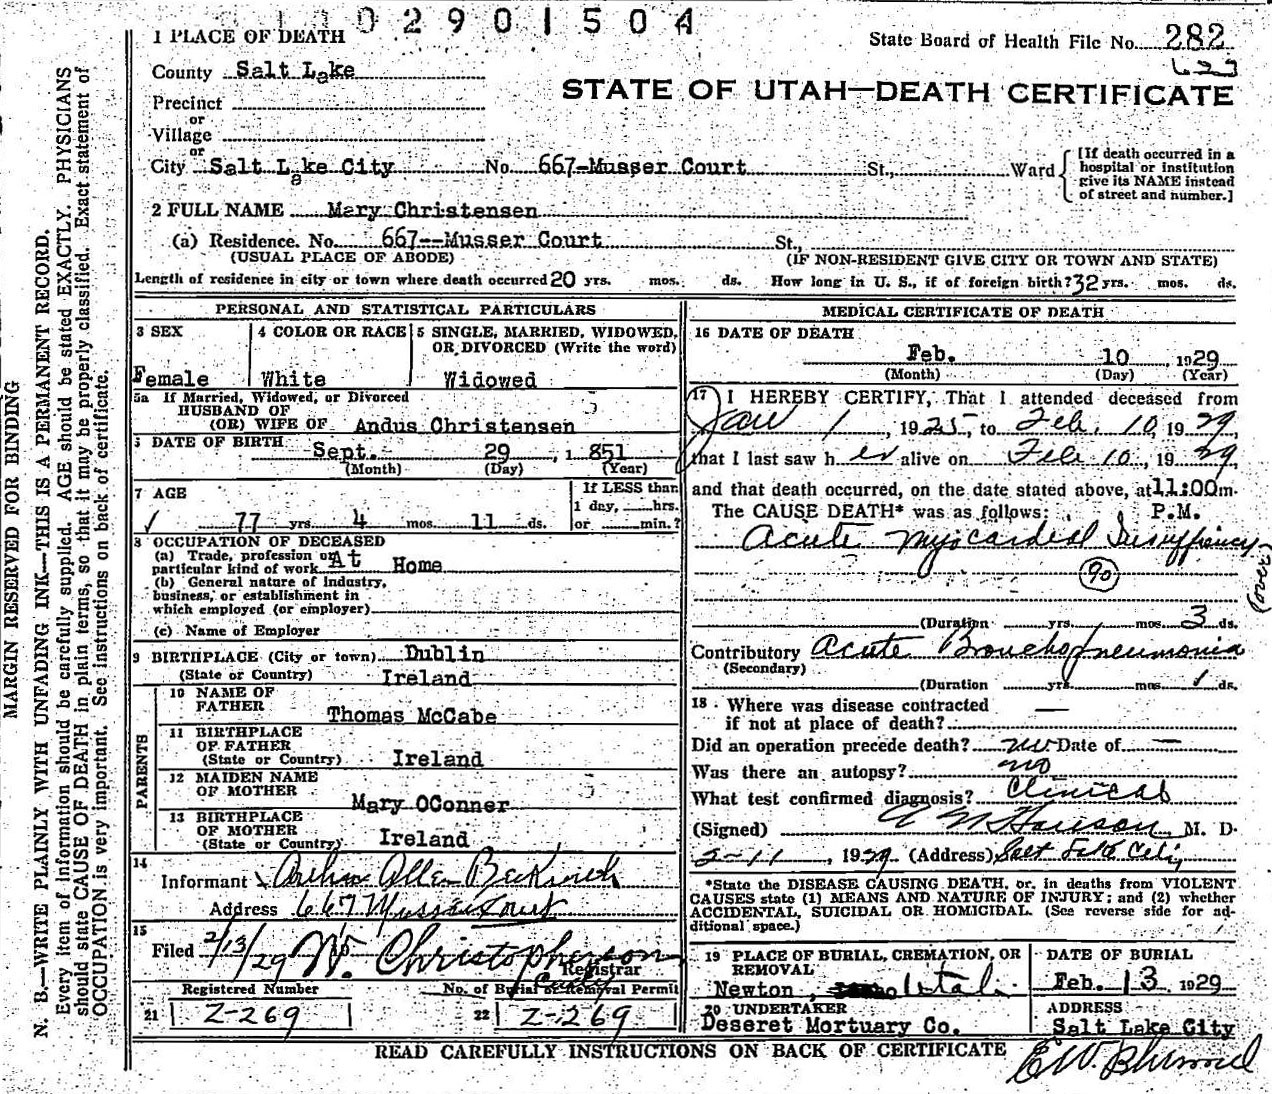 02901504
1 PLACE OF DEATH
State Board of Health File No. 282
County Salt Lake
STATE OF UTAH—DEATH CERTIFICATE
Precinct
or
Village
or
City Salt Lake City No. 667-Musser Court St., Ward
[If death occurred in a
hospital or institution
give its NAME instead
of street and number.]
2 FULL NAME Mary Christensen
(a) Residence. No. 667--Musser Court St.,
(USUAL PLACE OF ABODE) (IF NON-RESIDENT GIVE CITY OR TOWN AND STATE)
Length of residence in city or town where death occurred 20 yrs. mos. ds. How long in U. S., if of foreign birth? 32 yrs. mos. ds.
PERSONAL AND STATISTICAL PARTICULARS
3 SEX 4 COLOR OR RACE 5 SINGLE, MARRIED, WIDOWED,
OR DIVORCED (Write the word)
Female White Widowed
5a If Married, Widowed, or Divorced
HUSBAND OF
(OR) WIFE OF Andus Christensen
DATE OF BIRTH Sept. 29, 1851
(Month) (Day) (Year)
7 AGE If LESS than
1 day, hrs.
77 yrs. 4 mos. 11 ds. or min.?
8 OCCUPATION OF DECEASED
(a) Trade, profession or
particular kind of work At Home
(b) General nature of Industry,
business, or establishment in
which employed (or employer)
(c) Name of Employer
9 BIRTHPLACE (City or town) Dublin
(State or Country) Ireland
PARENTS
10 NAME OF
FATHER Thomas McCabe
11 BIRTHPLACE
OF FATHER
(State or Country) Ireland
12 MAIDEN NAME
OF MOTHER Mary OConner
13 BIRTHPLACE
OF MOTHER
(State or Country) Ireland
14
Informant Allen
Address 667 Musser Court
15
Filed 2/13/29 W. Christopherson
Registrar
Registered Number No. of Burial or Removal Permit
21 Z-269 22 Z-269
MEDICAL CERTIFICATE OF DEATH
16 DATE OF DEATH
Feb. 10 1929
(Month) (Day) (Year)
17 I HEREBY CERTIFY, That I attended deceased from
Jan 1, 1925, to Feb. 10, 1929,
that I last saw her alive on Feb 10, 1929
and that death occurred, on the date stated above, at 11:00m.
The CAUSE DEATH* was as follows: P.M.
Acute Myocardial Insufficiency
90
(over)
(Duration yrs. mos. 3 ds.
Contributory Acute Bronchopneumonia
(Secondary)
(Duration yrs. mos. 1 ds.
18 Where was disease contracted
if not at place of death? —
Did an operation precede death? no Date of —
Was there an autopsy? no
What test confirmed diagnosis? Clinical
(Signed) M. D.
2-11, 1929 (Address) Salt Lake City
*State the DISEASE CAUSING DEATH, or, in deaths from VIOLENT
CAUSES state (1) MEANS AND NATURE OF INJURY; and (2) whether
ACCIDENTAL, SUICIDAL OR HOMICIDAL. (See reverse side for ad-
ditional space.)
19 PLACE OF BURIAL, CREMATION, OR
REMOVAL
Newton, Utah.
DATE OF BURIAL
Feb. 13 1929
20 UNDERTAKER
Deseret Mortuary Co.
ADDRESS
Salt Lake City
READ CAREFULLY INSTRUCTIONS ON BACK OF CERTIFICATE
MARGIN RESERVED FOR BINDING
N. B.—WRITE PLAINLY WITH UNFADING INK—THIS IS A PERMANENT RECORD.
Every item of information should be carefully supplied. AGE should be stated EXACTLY. PHYSICIANS
should state CAUSE OF DEATH in plain terms, so that it may be properly classified. Exact statement of
OCCUPATION is very important. See instructions on back of certificate.